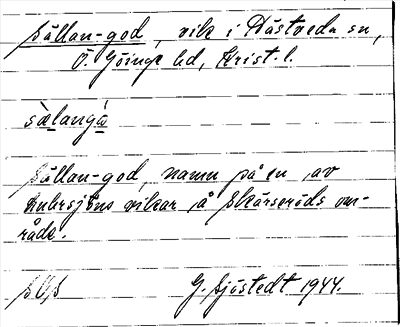 Sällan-god, vik i Hästveda sn,
Ö. Göinge hd, Krist. l.
sàlangá
Sällan-god, namn på en av
sjöns vikar å Skärseröds om-
råde.
SOS G. Sjöstedt 1944.